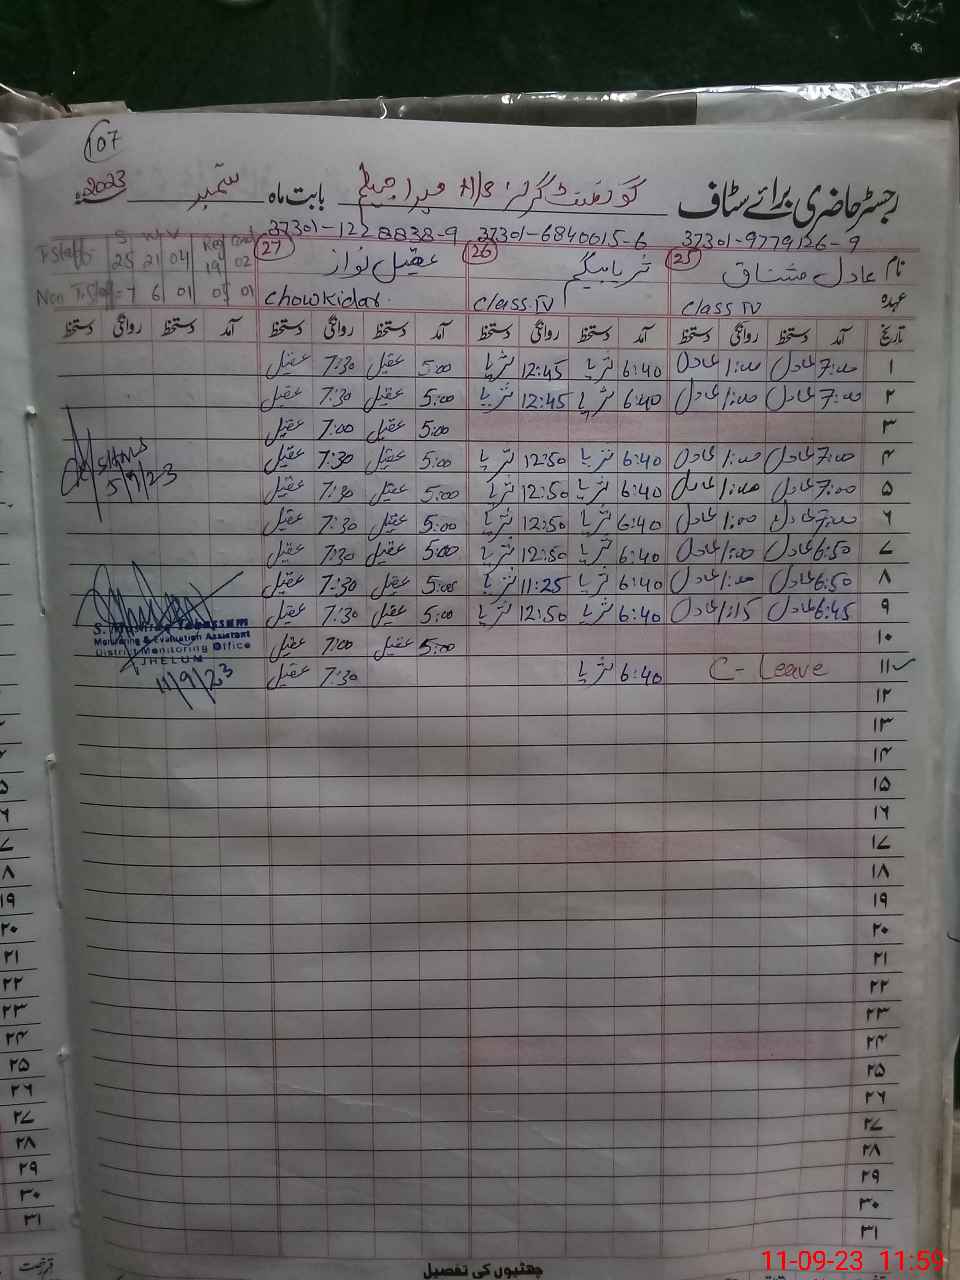 107
رجسٹر حاضری برائے سٹاف گورنمنٹ گرلز H/S بابت ماہ ستمبر 2023
37301-9779126-9 37301-6840615-6 37301-1228838-9
نام 25 عادل مشتاق 26 ثریا بیگم 27 عقیل نواز
عہدہ Class IV Class IV Chowkidar
S W V Reg Cont
T.Staff- 25 21 04 19 02
Non T.Staf = 7 6 01 05 01
تاریخ آمد دستخط روانگی دستخط آمد دستخط روانگی دستخط آمد دستخط روانگی دستخط آمد دستخط روانگی دستخط
۱ 7:00 عادل 1:00 عادل 6:40 ثریا 12:45 ثریا 5:00 عقیل 7:30 عقیل
۲ 7:00 عادل 1:00 عادل 6:40 ثریا 12:45 ثریا 5:00 عقیل 7:30 عقیل
۳ 5:00 عقیل 7:00 عقیل
۴ 7:00 عادل 1:00 عادل 6:40 ثریا 12:50 ثریا 5:00 عقیل 7:30 عقیل
۵ 7:00 عادل 1:00 عادل 6:40 ثریا 12:50 ثریا 5:00 عقیل 7:30 عقیل
۶ 7:00 عادل 1:00 عادل 6:40 ثریا 12:50 ثریا 5:00 عقیل 7:30 عقیل
۷ 6:50 عادل 1:00 عادل 6:40 ثریا 12:50 ثریا 5:00 عقیل 7:30 عقیل
۸ 6:50 عادل 1:00 عادل 6:40 ثریا 11:25 ثریا 5:00 عقیل 7:30 عقیل
۹ 6:45 عادل 1:15 عادل 6:40 ثریا 12:50 ثریا 5:00 عقیل 7:30 عقیل
۱۰ 5:00 عقیل 7:00 عقیل
۱۱ C- Leave 6:40 ثریا 7:30 عقیل
۱۲
۱۳
۱۴
۱۵
۱۶
۱۷
۱۸
۱۹
۲۰
۲۱
۲۲
۲۳
۲۴
۲۵
۲۶
۲۷
۲۸
۲۹
۳۰
۳۱
5/9/23
Tabassum
Monitoring & Evaluation Assistant
District Monitoring Office
JHELUM
11/9/23
چھٹیوں کی تفصیل
۵
۶
۷
۸
۱۹
۲۰
۲۱
۲۲
۲۳
۲۴
۲۵
۲۶
۲۷
۲۸
۲۹
۳۰
۳۱
11-09-23 11:59